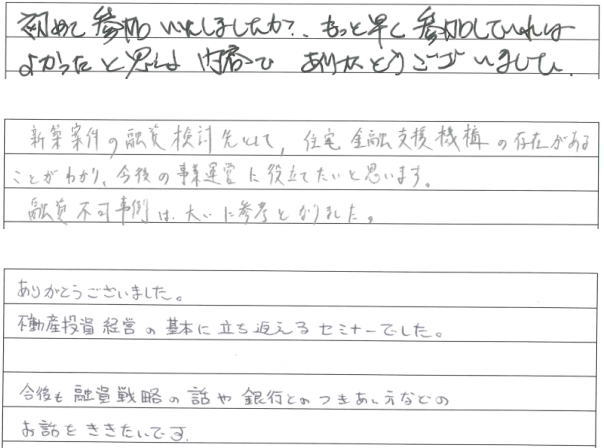 初めて参加いたしましたが、もっと早く参加していれば
よかったと思える内容で ありがとうございました。
新築案件の融資検討先として、住宅金融支援機構の存在がある
ことがわかり、今後の事業運営に役立てたいと思います。
融資不可事例は、大いに参考となりました。
ありがとうございました。
不動産投資経営の基本に立ち返えるセミナーでした。
今後も融資戦略の話や銀行とのつきあい方などの
お話をききたいです。